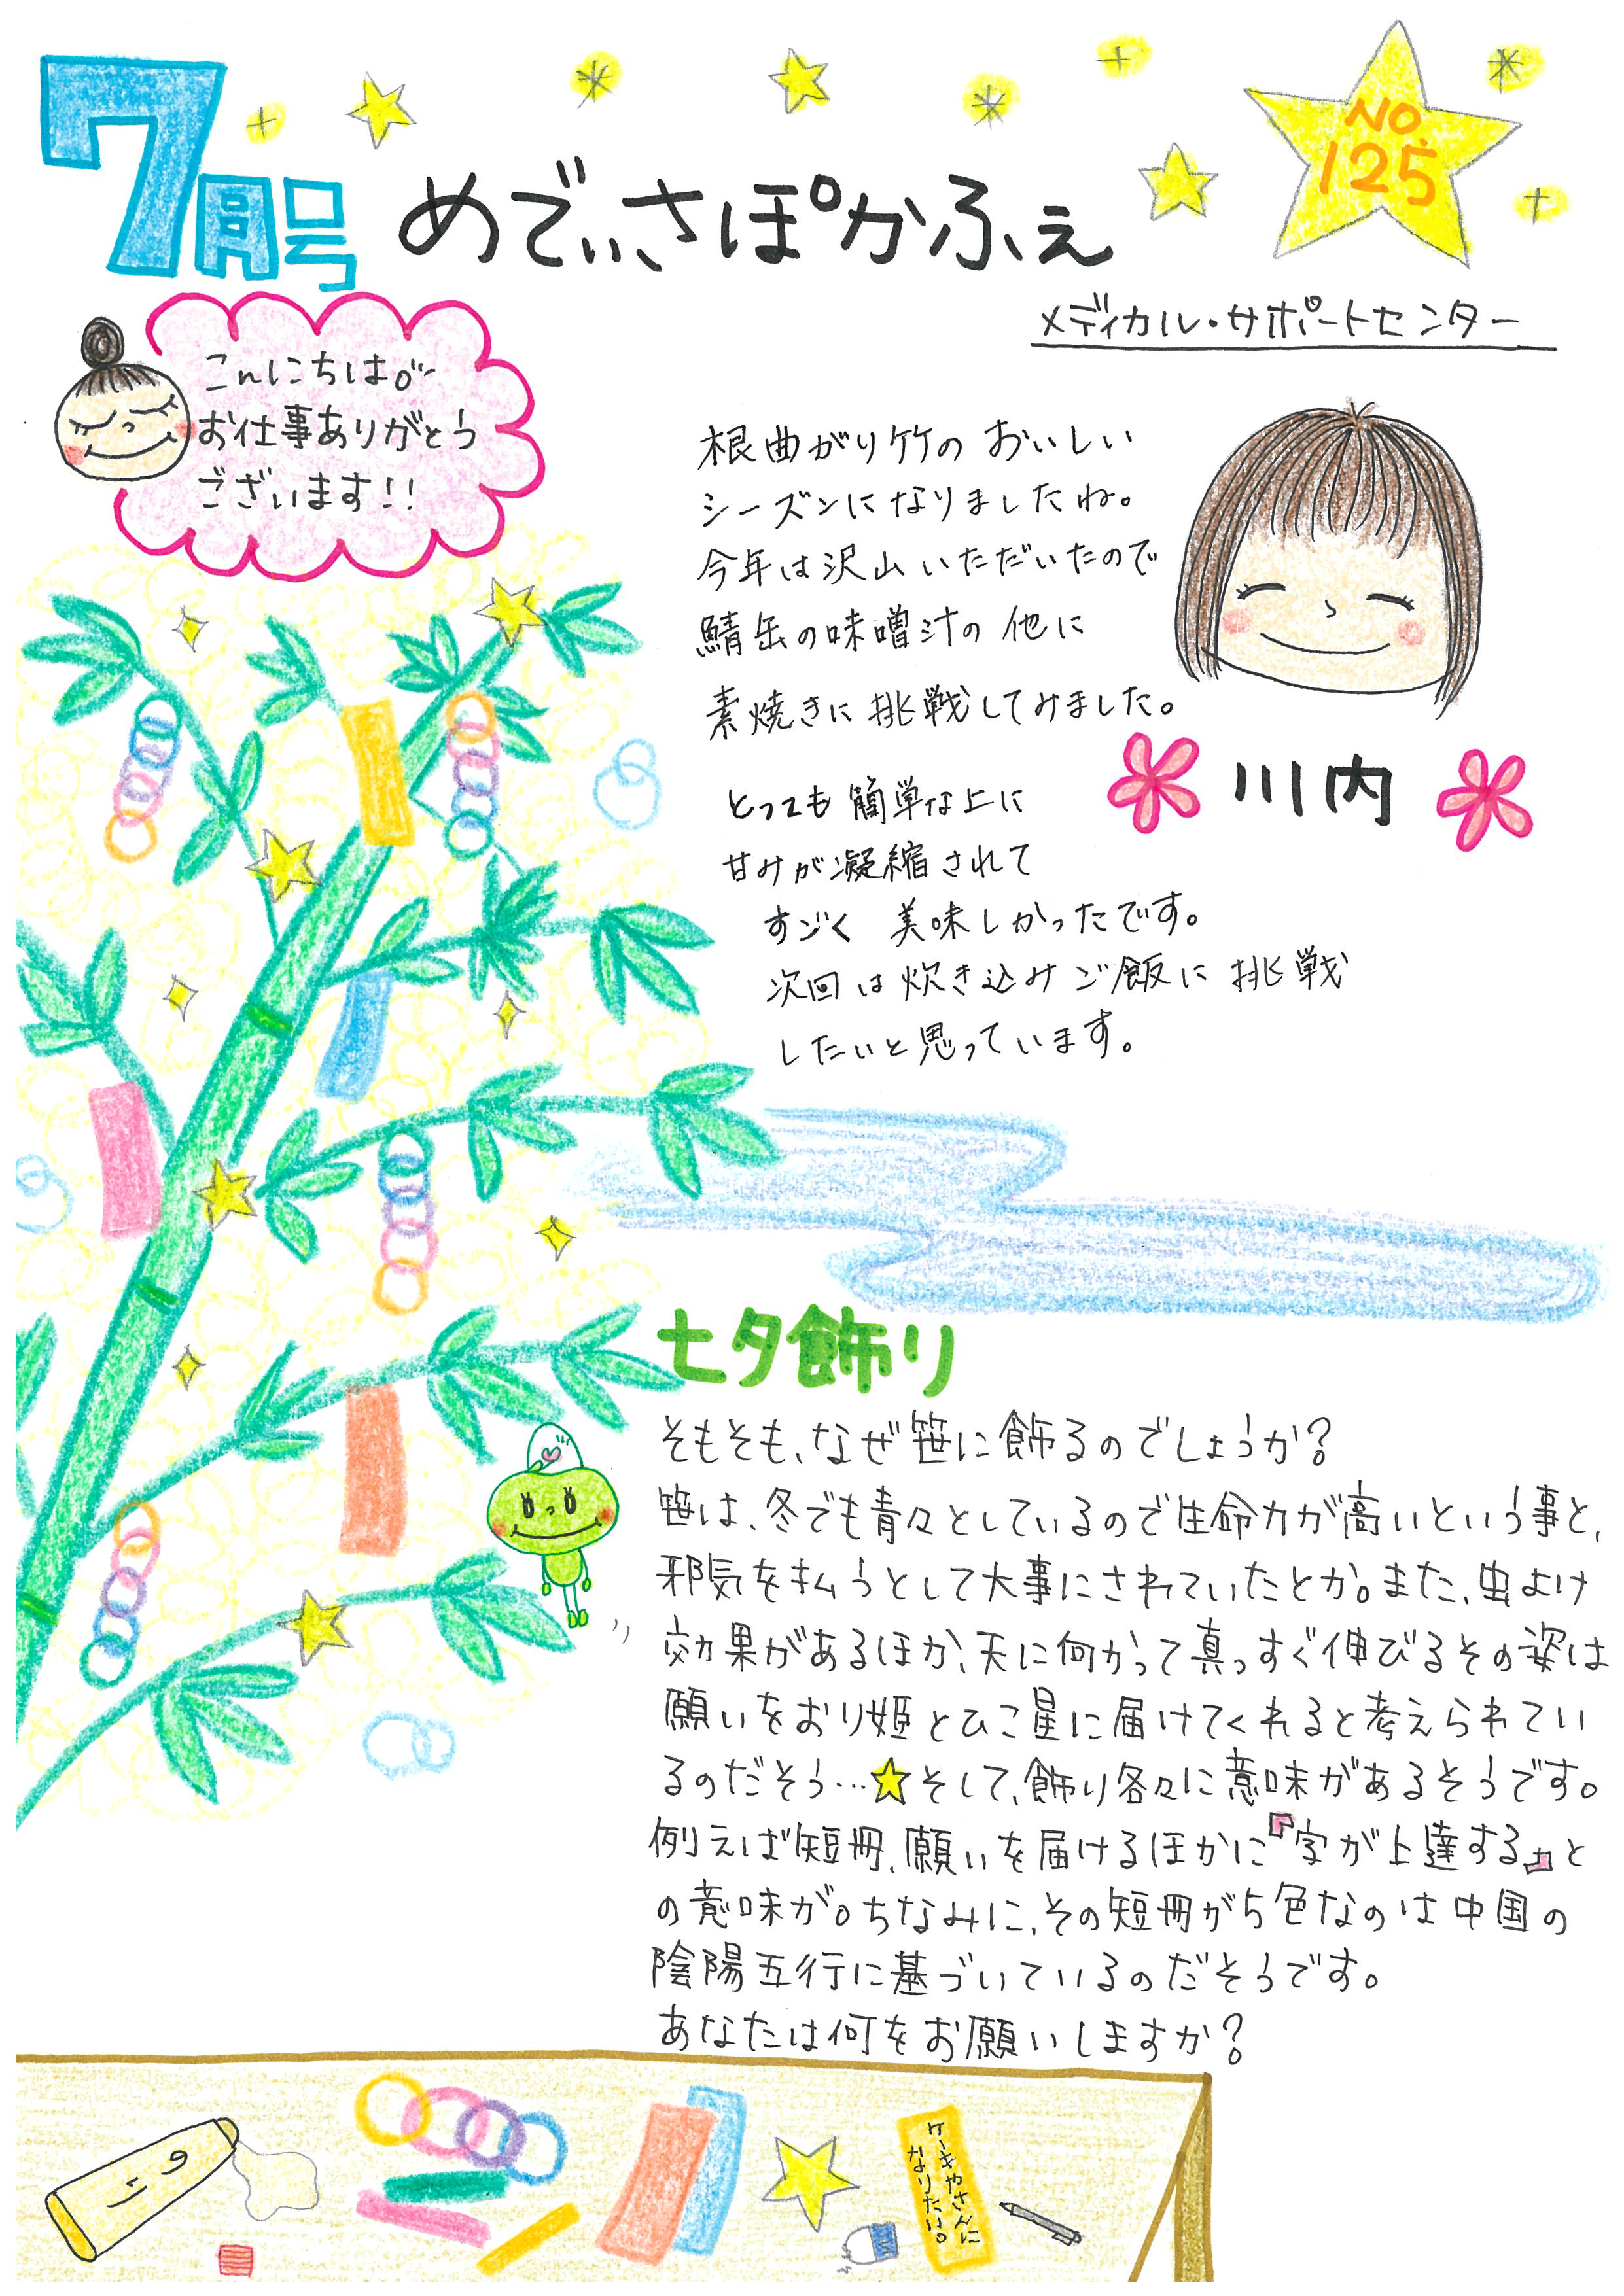 7月号
めでぃさぽかふぇ
NO.
125
メディカル・サポートセンター
こんにちは。
お仕事ありがとう
ございます!!
根曲がり竹のおいしい
シーズンになりましたね。
今年は沢山いただいたので
鯖缶の味噌汁の他に
素焼きに挑戦してみました。
とっても簡単な上に
甘みが凝縮されて
すごく美味しかったです。
次回は炊き込みご飯に挑戦
したいと思っています。
川内
七夕飾り
そもそも、なぜ笹に飾るのでしょうか?
笹は、冬でも青々としているので生命力が高いという事と、
邪気を払うとして大事にされていたとか。また、虫よけ
効果があるほか、天に向かって真っすぐ伸びるその姿は
願いをおり姫とひこ星に届けてくれると考えられてい
るのだそう…☆そして、飾り各々に意味があるそうです。
例えば短冊、願いを届けるほかに『字が上達する』と
の意味が。ちなみに、その短冊が5色なのは中国の
陰陽五行に基づいているのだそうです。
あなたは何をお願いしますか?
ケーキやさんに
なりたい。